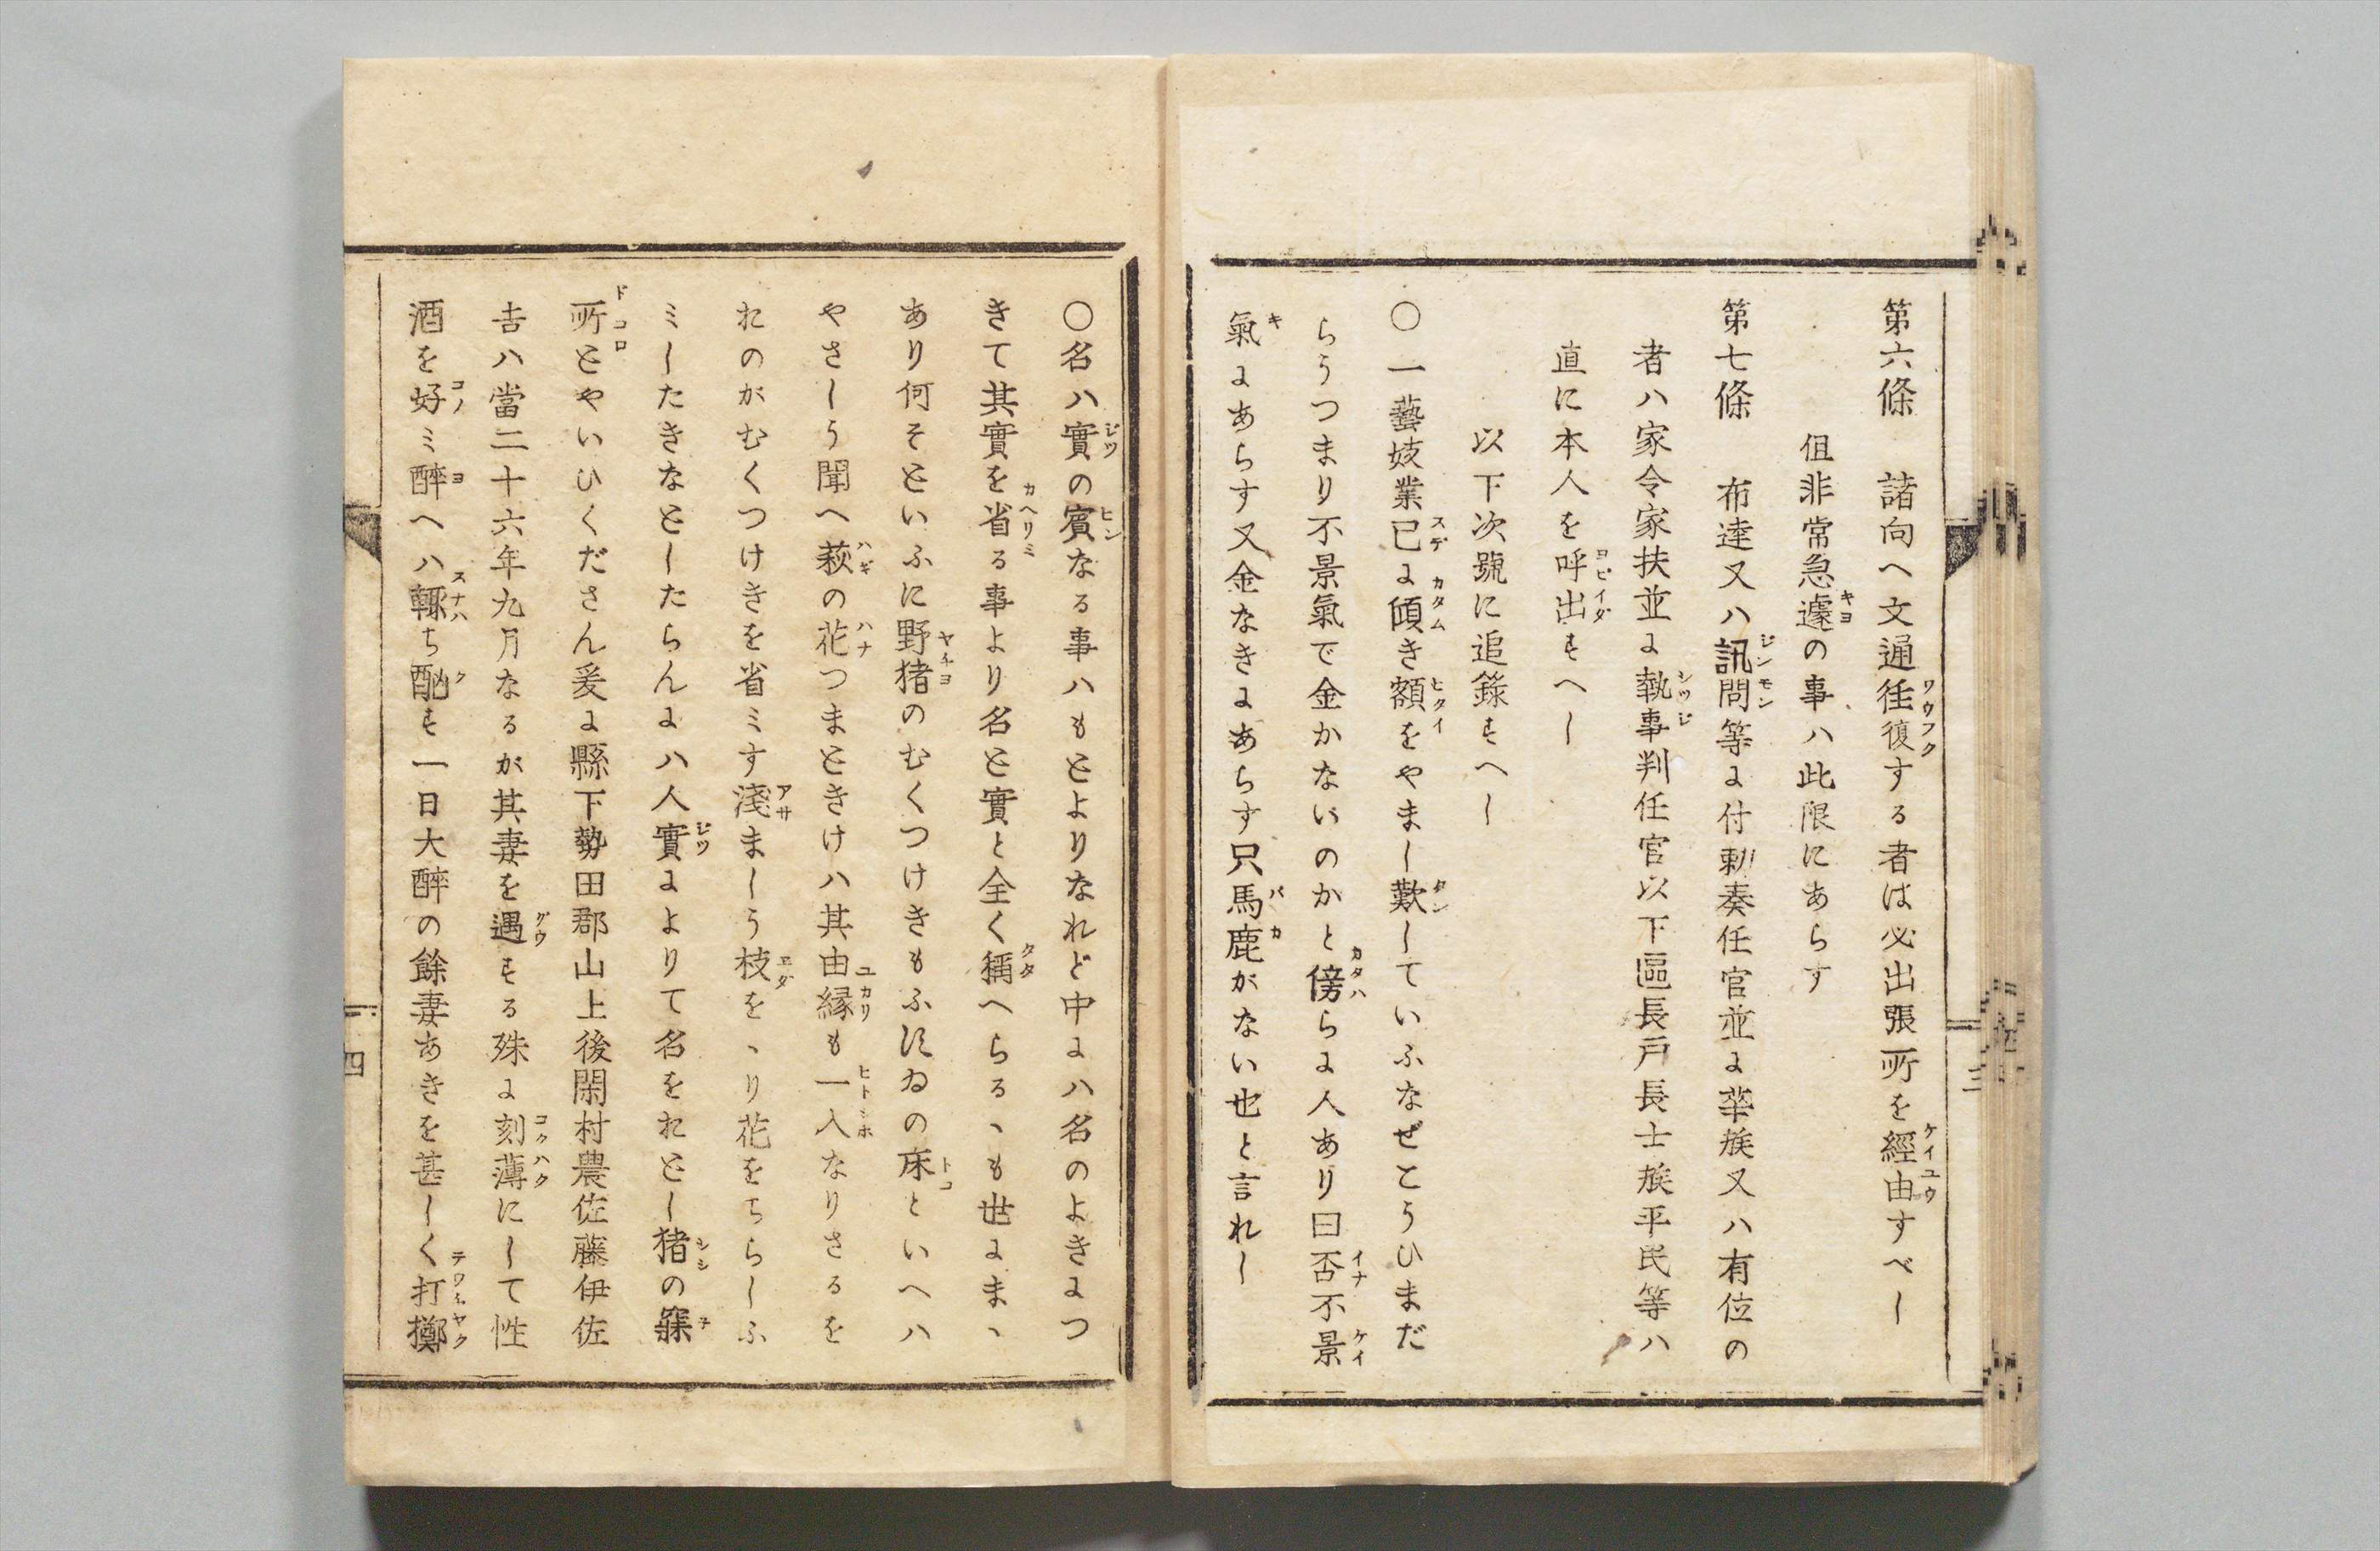 第六條　諸向へ文通徃復する者は必出張所を經由すべし
但非常急遽の事ハ此限にあらす
第七條　布達又ハ訊問等に付勅奏任官並に華族又ハ有位の
者ハ家令家扶並に執事判任官以下區長戸長士族平民等ハ
直に本人を呼出すへし
以下次號に追錄すへし
〇一藝妓業已に傾き額をやまし歎していふなぜこうひまだ
らうつまり不景氣で金かないのかと傍らに人あり曰否不景
氣にあらす又金なきにあらす只馬鹿がない也と言れし
三
〇名ハ實の賓なる事ハもとよりなれど中にハ名のよきにつ
きて其實を省る事より名と實と全く稱へらるゝも世にまゝ
あり何そといふに野猪のむくつけきもふ須ゐの床といへハ
やさしう聞へ萩の花つまときけハ其由縁も一入なりさるを
れのがむくつけきを省ミす淺ましう枝をゝり花をちらしふ
ミしたきなとしたらんにハ人實によりて名をれとし猪の寐
所とやいひくださん爰に縣下勢田郡山上後閑村農佐藤伊佐
吉ハ當二十六年九月なるが其妻を遇する殊に刻薄にして性
酒を好ミ醉へハ輙ち酗す一日大醉の餘妻あきを甚しく打擲
四